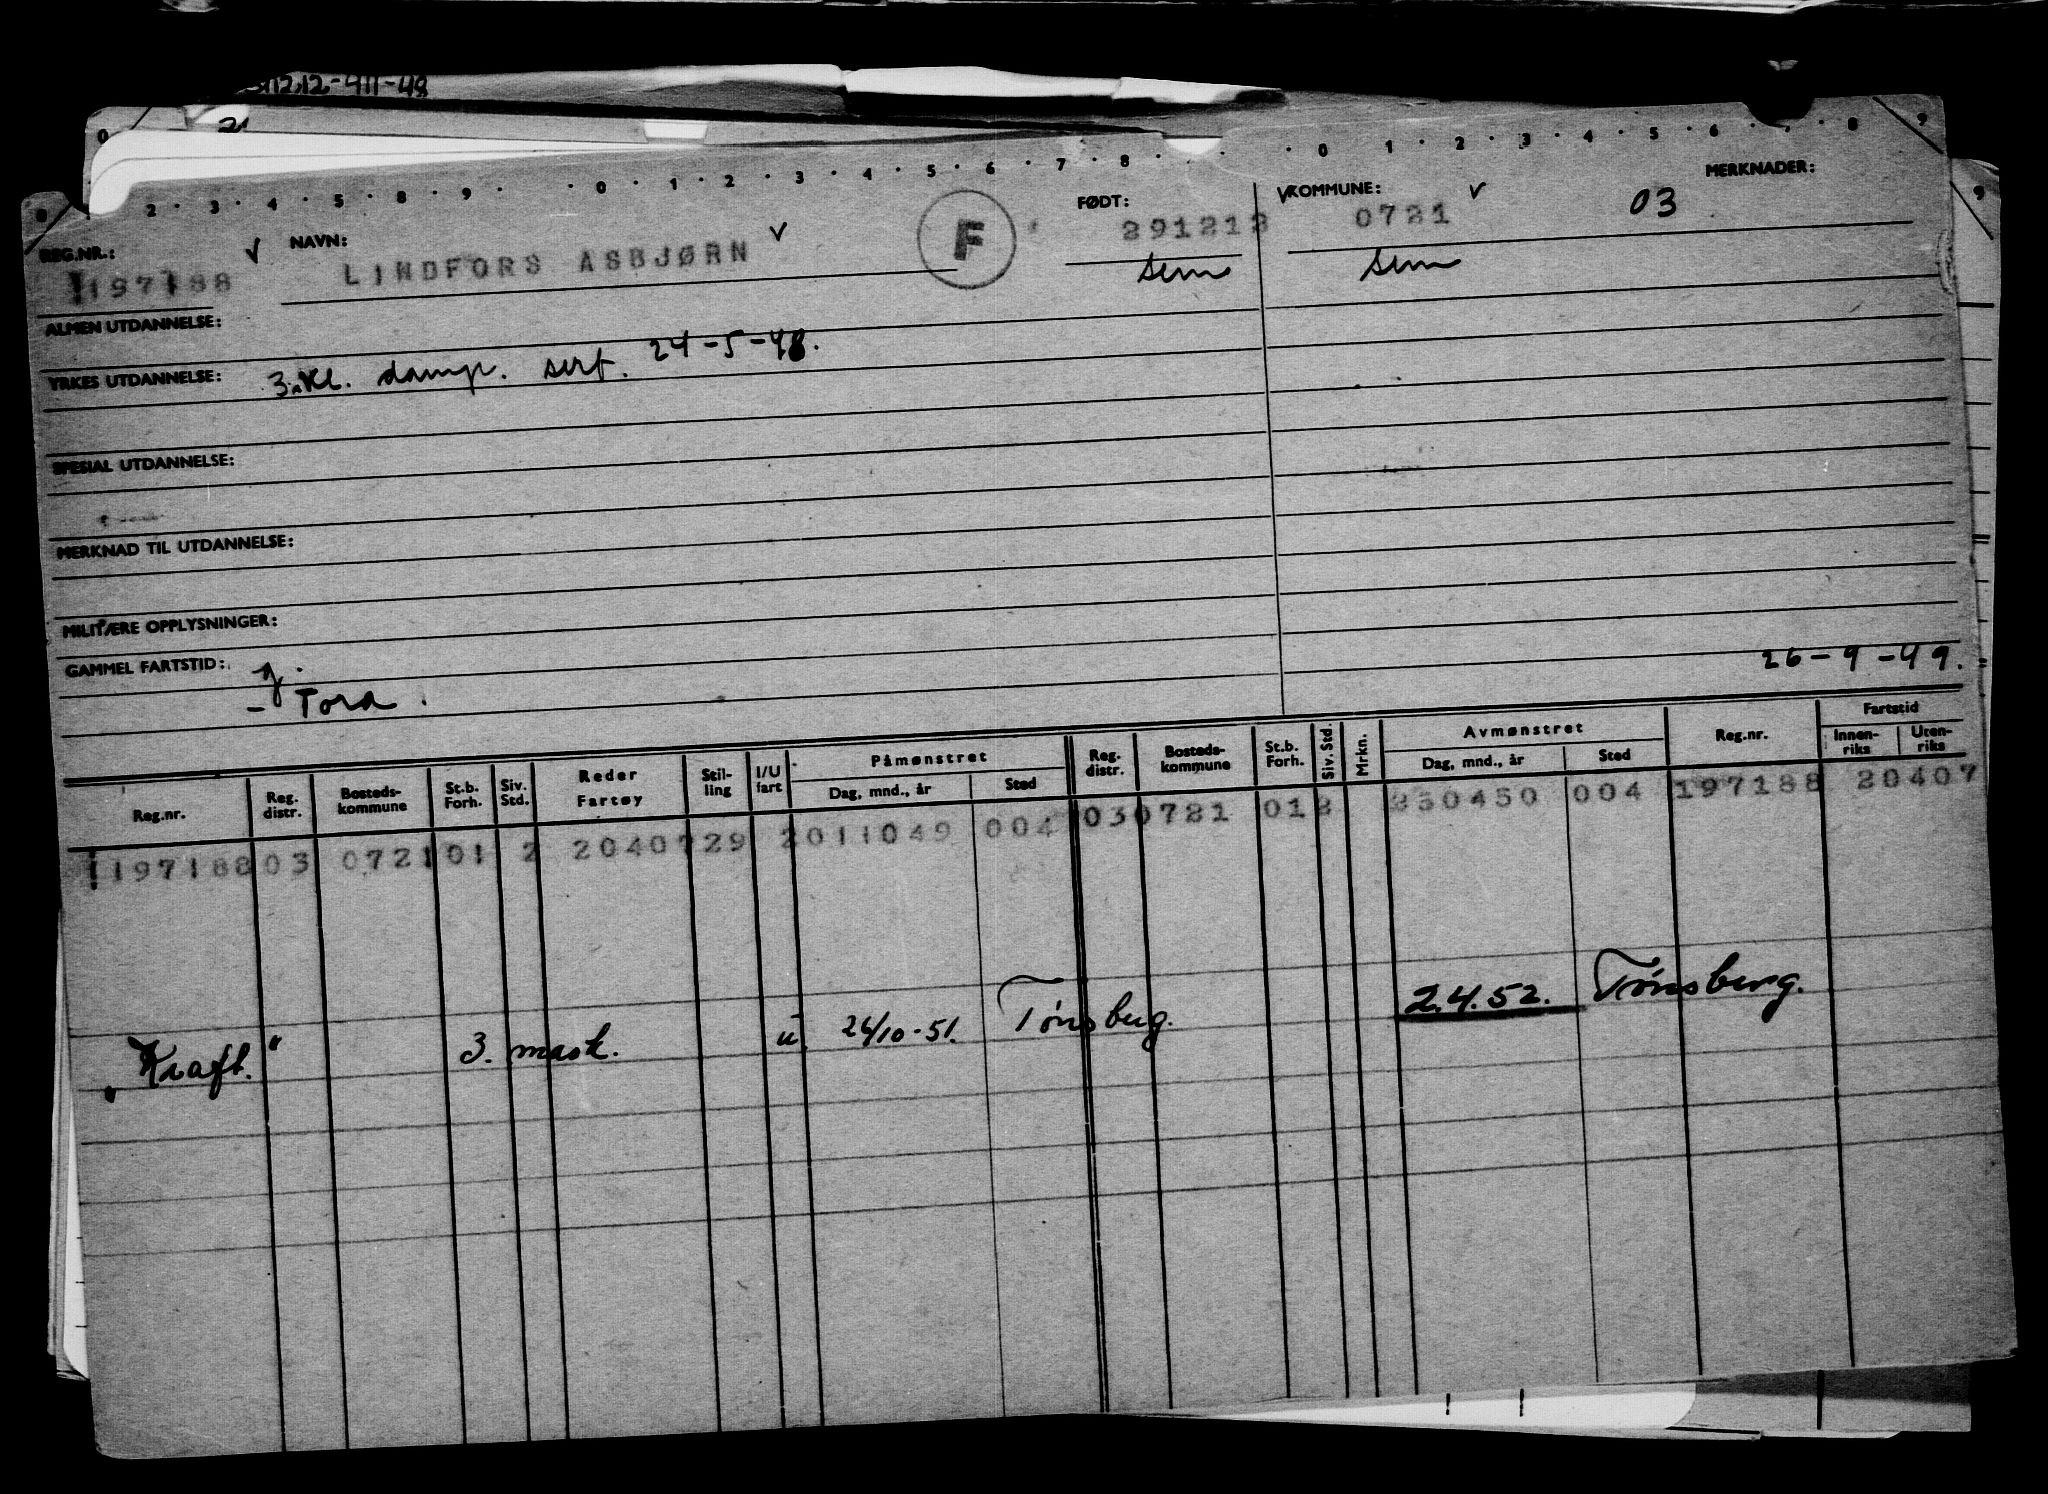 1212-411-48
0
0 1 2 3 4 5 6 7 8 9
2 3 4 5 8 9 0 1 2 3 4 5 6 7 8
REG.NR.: NAVN: FØDT: KOMMUNE: MERKNADER:
197188 LINDFORS ASBJØRN F 291212 0721 03
Sem Sem
ALMEN UTDANNELSE:
YRKES UTDANNELSE: 3. kl. damp. serf. 24-5-48.
SPESIAL UTDANNELSE:
MERKNAD TIL UTDANNELSE:
MILITÆRE OPPLYSNINGER:
GAMMEL FARTSTID:
- Tora. 26-9-49.
Påmønstret Avmønstret Fartstid
Reg.nr. Reg. distr. Bosteds-kommune St.b. Forh. Siv. Std. Reder Fartøy Stil-ling I/U fart Dag, mnd., år Sted Reg. distr. Bosteds-kommune St.b. Forh. Siv. Std. Mrkn. Dag, mnd., år Sted Reg.nr. Innen-riks Uten-riks
197188 03 0721 01 2 2040729 2011049 004 03 0721 01 2 250450 004 197188 20407
"Kraft." 3. mask. u 26/10-51. Tønsberg. 2.4.52. Tønsberg.